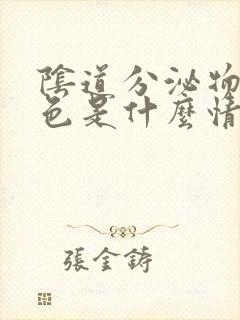 陰道分泌物
色是什麼情
張金鑄